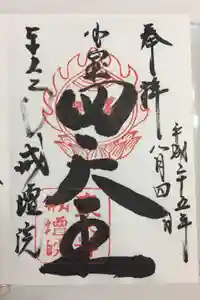 奉拝
平成二十五年
八月四日
四天王
東大寺戒壇院